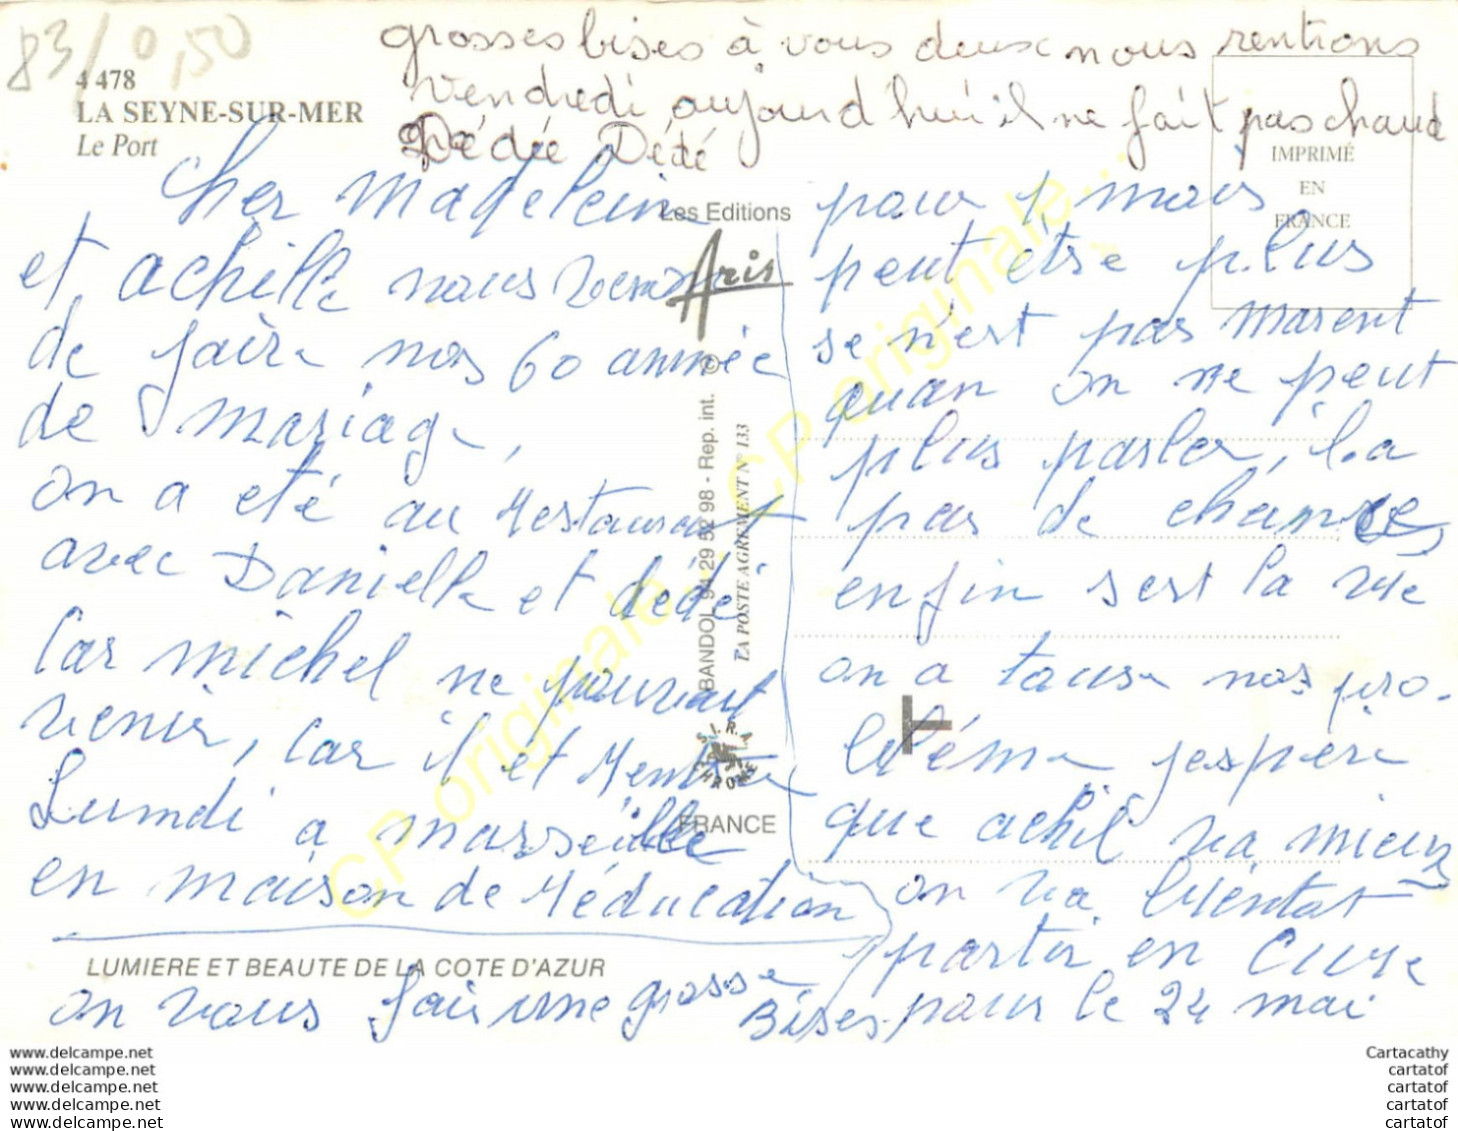 83/0,50
grosses bises à vous deux nous rentrons
vendredi aujourd'hui il ne fait pas chaud
Dédée Dédé
4 478
LA SEYNE-SUR-MER
Le Port
IMPRIMÉ
EN
FRANCE
Cher Madelein
et achille nous venons
de faire nos 60 année
de mariage,
on a eté au restaurant
avec Danielle et dédé
Car michel ne pouvait
venir, car il et rentre
Lundi a marseille
en maison de réducation
pour 1 mois
peut etre plus
se n'est pas marent
quan on ne peut
plus parler, il a
pas de chances
enfin sest la vie
on a tous nos pro-
blème jespère
que achil va mieux
on va bientat
partir en cure
pour le 24 mai
on vous fais une grosse Bises
Les Editions
Aris
BANDOL 94 29 52 98 - Rep. int. ©
LA POSTE AGREMENT N° 133
S.I.R.A.
CHROME
FRANCE
T
LUMIERE ET BEAUTE DE LA COTE D'AZUR
CP originale... CP originale...
www.delcampe.net
www.delcampe.net
www.delcampe.net
www.delcampe.net
www.delcampe.net
Cartacathy
cartatof
cartatof
cartatof
cartatof